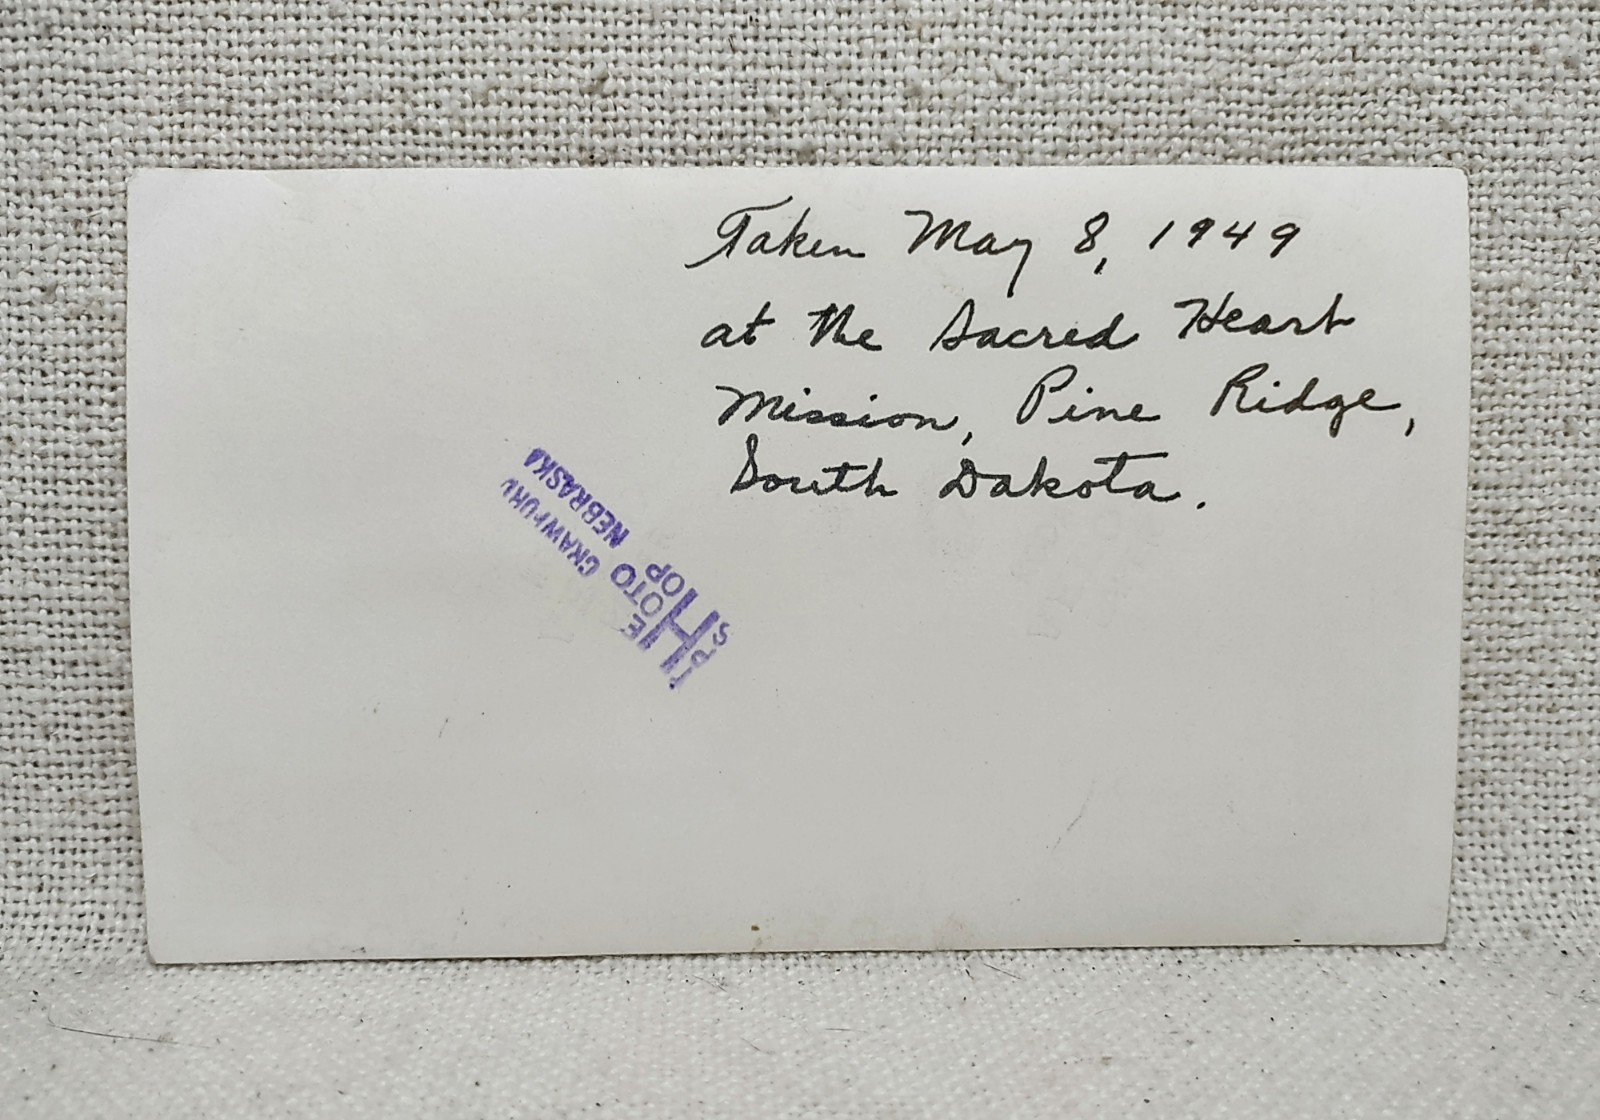 Taken May 8, 1949
at the Sacred Heart
Mission, Pine Ridge,
South Dakota.
PHOTO
SHOP
CRAWFORD
NEBRASKA